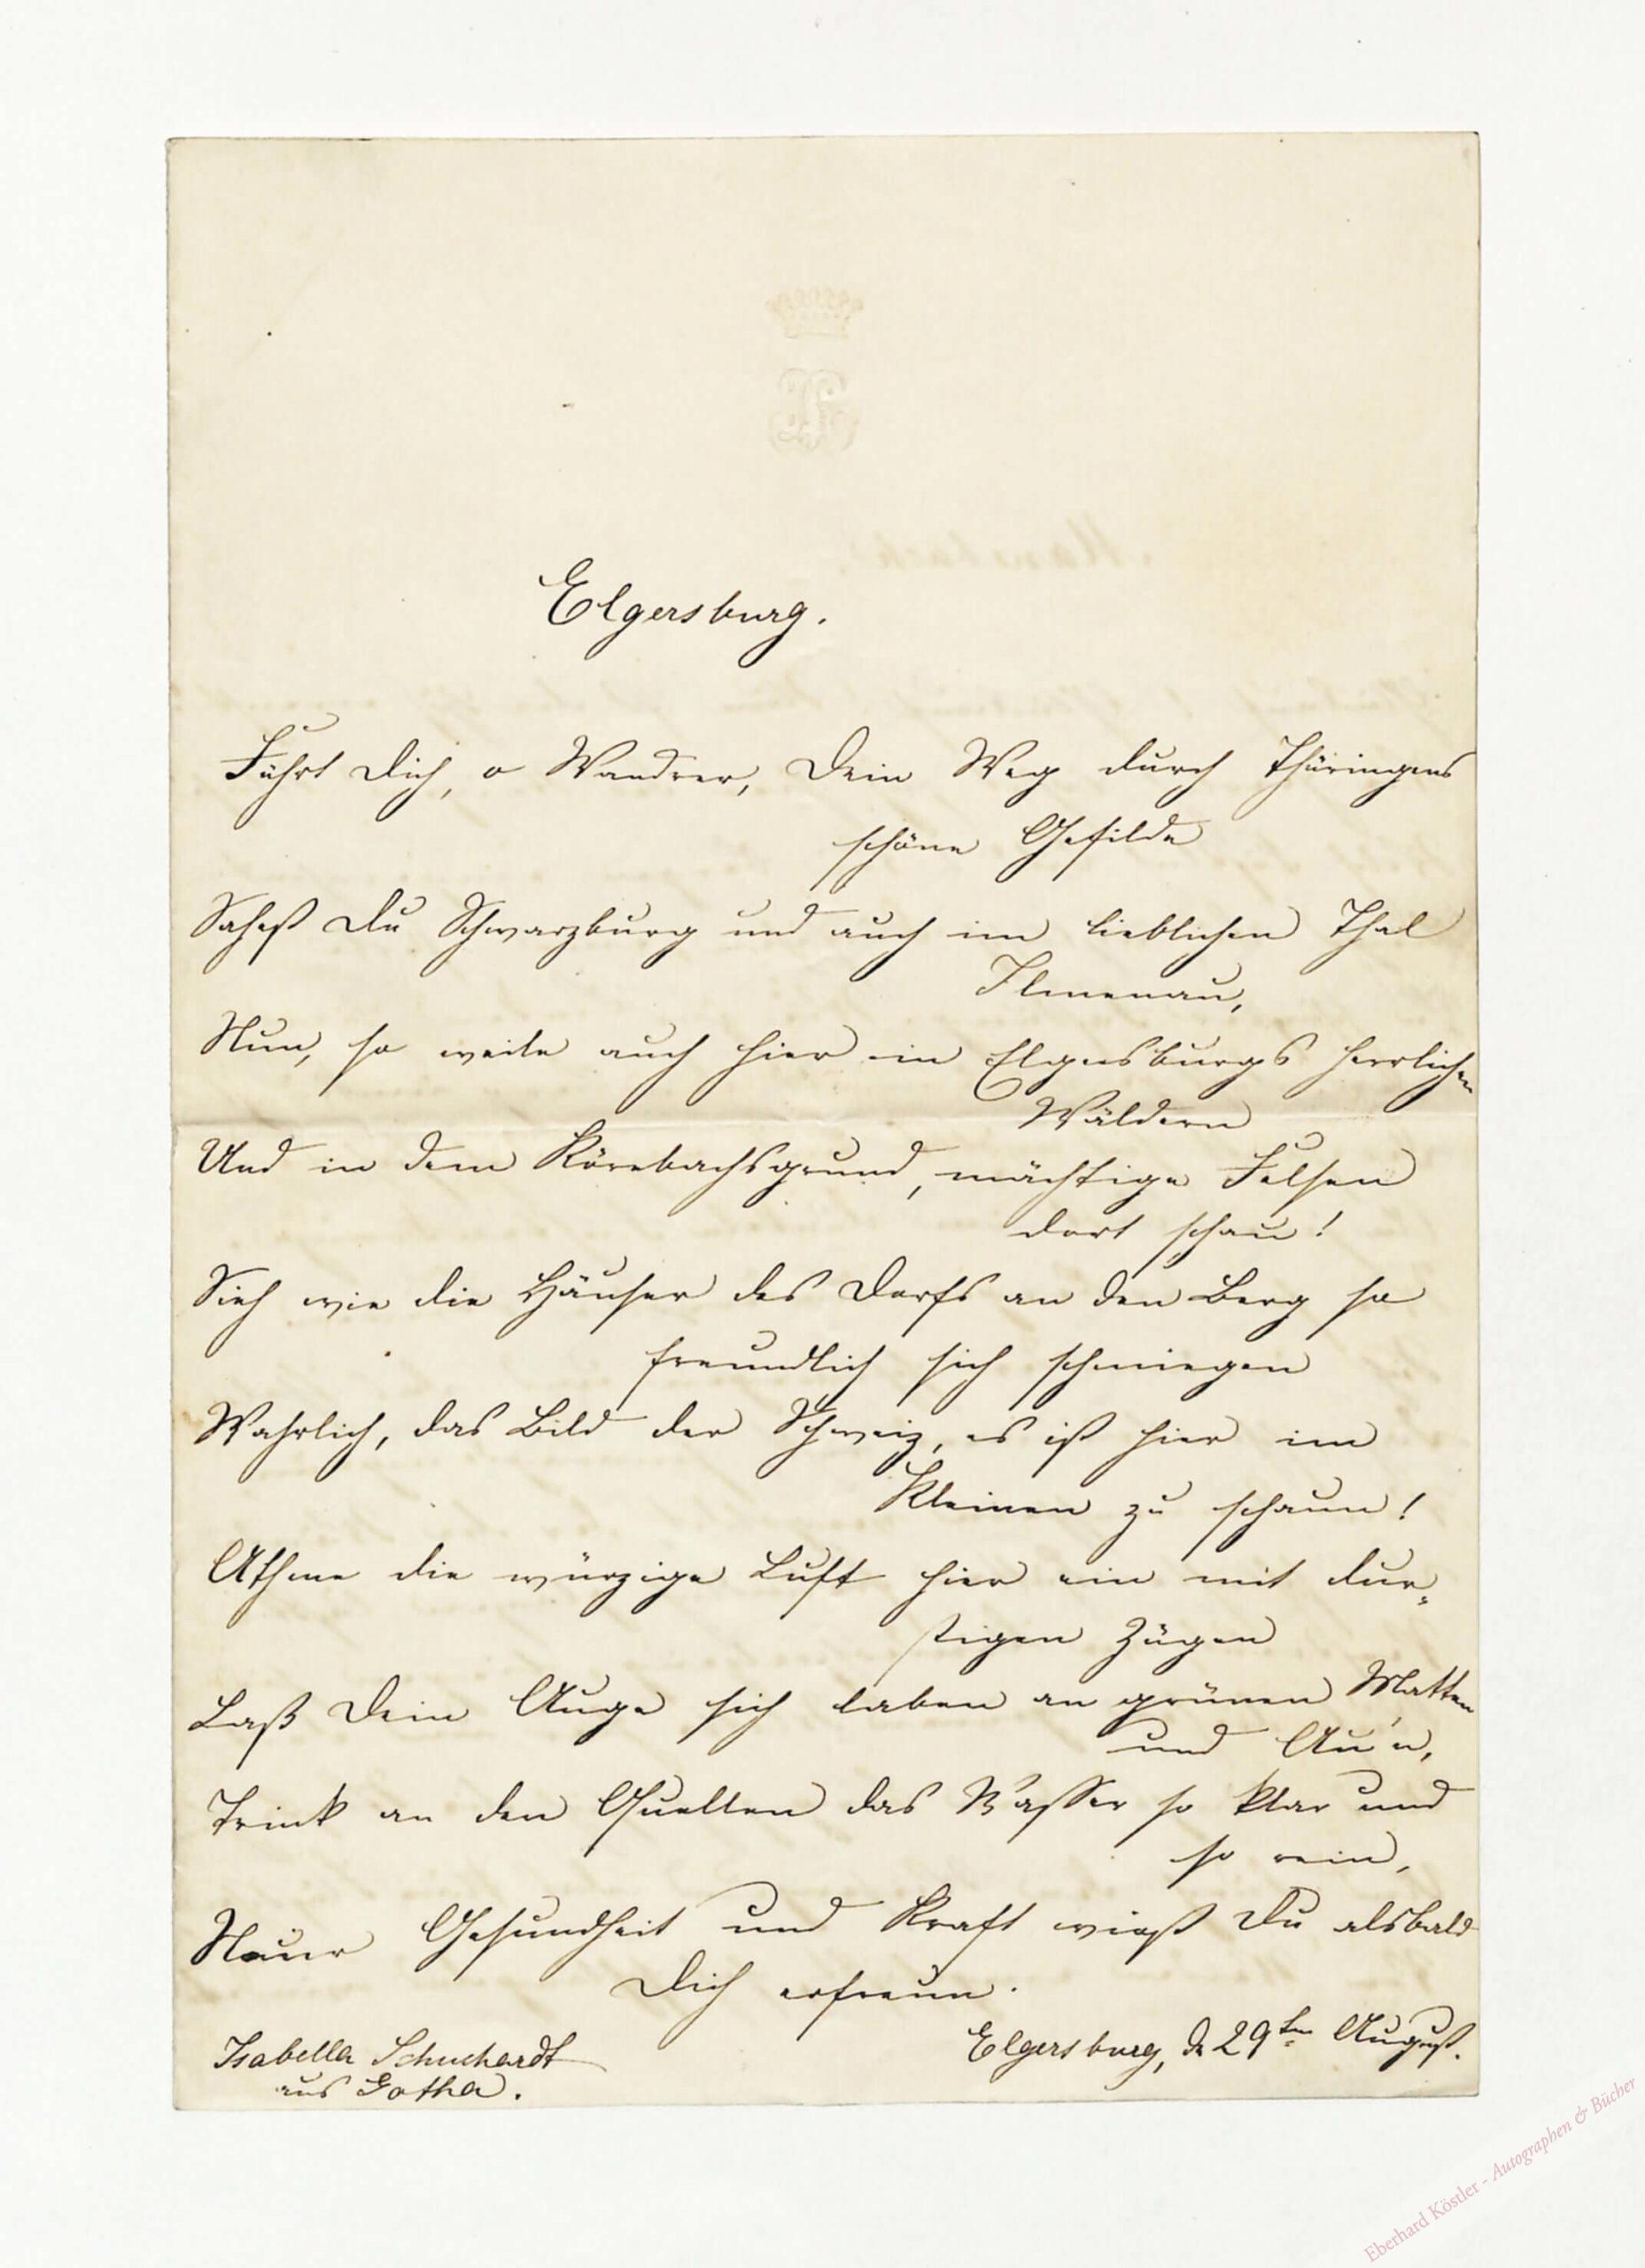 Elgersburg.
Führt Dich, o Wandrer, Dein Weg durch Thüringens
schöne Gefilde
Sahest Du Schwarzburg und auch im lieblichen Thal
Ilmenau,
Nun, so weile auch hier in Elgersburgs herrlichen
Wäldern
Und in dem Körnbachsgrund, mächtige Felsen
dort schau!
Sieh wie die Häuser des Dorfs an den Berg so
freundlich sich schmiegen
Wahrlich, das Bild der Schweiz, es ist hier im
Kleinen zu schaun!
Athme die würzige Luft hier ein mit dur-
stigen Zügen
Laß Dein Auge sich laben an grünen Matten
und Au'n,
Trink an den Quellen das Wasser so klar und
so rein,
Neuer Gesundheit und Kraft wirst Du alsbald
Dich erfreun.
Elgersburg, d. 29ten August.
Isabella Schuchardt
aus Gotha.
Eberhard Köstler - Autographen & Bücher